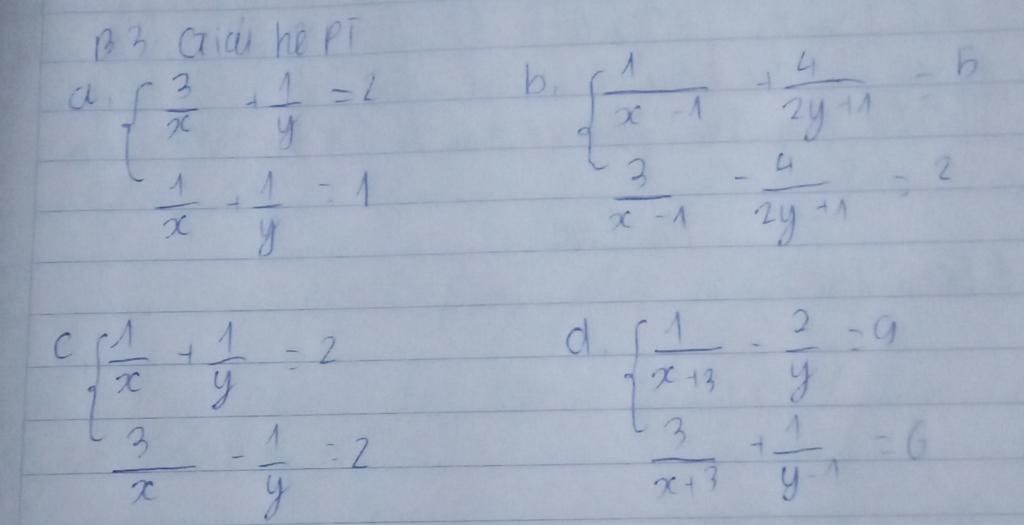 B3 Giải hệ PT
a. { 3/x + 1/y = 2
1/x + 1/y = 1
b. { 1/(x - 1) + 4/(2y + 1) = 5
3/(x - 1) - 4/(2y + 1) = 2
c { 1/x + 1/y = 2
3/x - 1/y = 2
d. { 1/(x + 3) - 2/y = 9
3/(x + 3) + 1/(y - 1) = 6